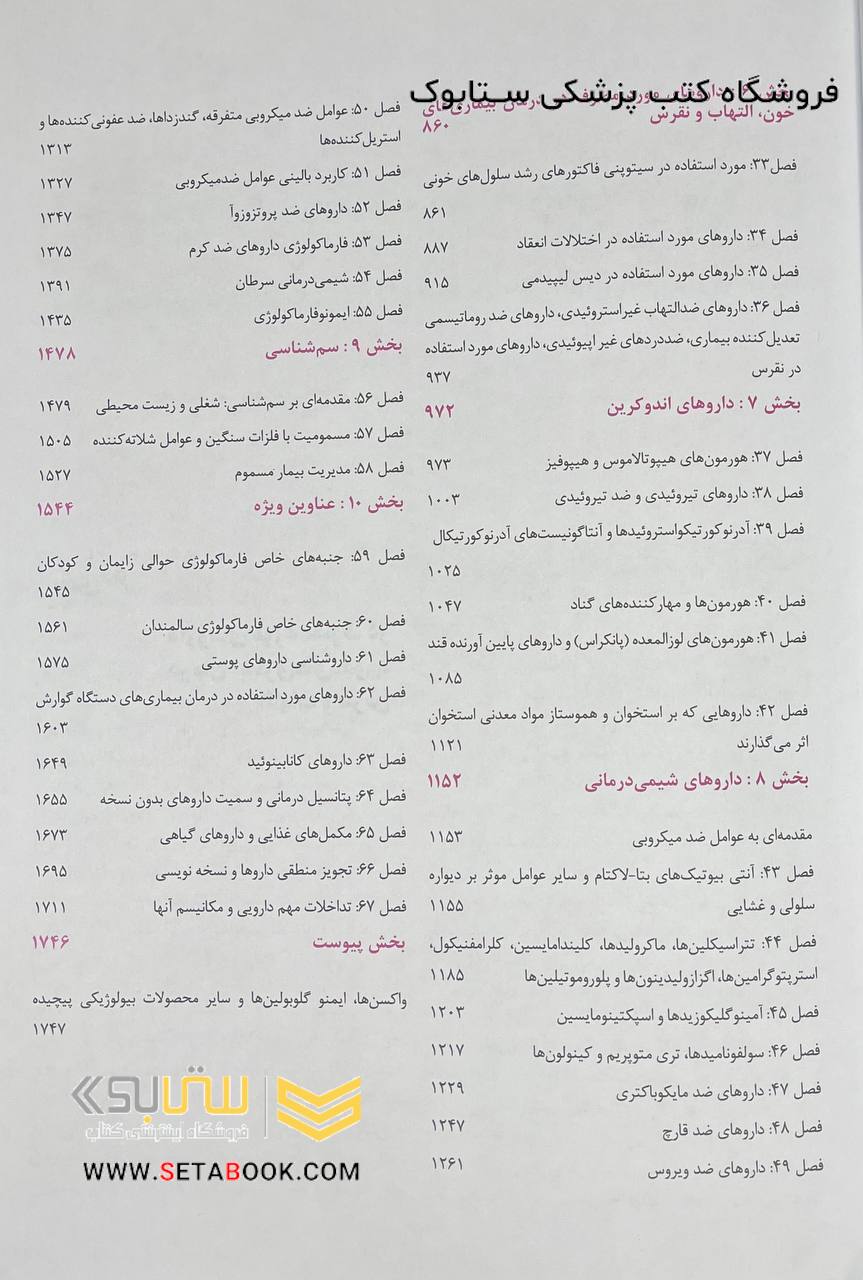 فروشگاه کتب پزشکی سـتابوک
بخش ۶
خون، التهاب و نقرس
۸۶۰
فصل۳۳: مورد استفاده در سیتوپنی فاکتورهای رشد سلول‌های خونی
۸۶۱
فصل ۳۴: داروهای مورد استفاده در اختلالات انعقاد ۸۸۷
فصل ۳۵: داروهای مورد استفاده در دیس لیپیدمی ۹۱۵
فصل ۳۶: داروهای ضدالتهاب غیراستروئیدی، داروهای ضد روماتیسمی
تعدیل‌کننده بیماری، ضددردهای غیر اپیوئیدی، داروهای مورد استفاده
در نقرس ۹۳۷
بخش ۷ : داروهای اندوکرین ۹۷۲
فصل ۳۷: هورمون‌های هیپوتالاموس و هیپوفیز ۹۷۳
فصل ۳۸: داروهای تیروئیدی و ضد تیروئیدی ۱۰۰۳
فصل ۳۹: آدرنوکورتیکواستروئیدها و آنتاگونیست‌های آدرنوکورتیکال
۱۰۲۵
فصل ۴۰: هورمون‌ها و مهارکننده‌های گناد ۱۰۴۷
فصل ۴۱: هورمون‌های لوزالمعده (پانکراس) و داروهای پایین آورنده قند
۱۰۸۵
فصل ۴۲: داروهایی که بر استخوان و هموستاز مواد معدنی استخوان
اثر می‌گذارند ۱۱۲۱
بخش ۸ : داروهای شیمی‌درمانی ۱۱۵۲
مقدمه‌ای به عوامل ضد میکروبی ۱۱۵۳
فصل ۴۳: آنتی بیوتیک‌های بتا-لاکتام و سایر عوامل موثر بر دیواره
سلولی و غشایی ۱۱۵۵
فصل ۴۴: تتراسیکلین‌ها، ماکرولیدها، کلیندامایسین، کلرامفنیکول،
استرپتوگرامین‌ها، اگزازولیدینون‌ها و پلوروموتیلین‌ها ۱۱۸۵
فصل ۴۵: آمینوگلیکوزیدها و اسپکتینومایسین ۱۲۰۳
فصل ۴۶: سولفونامیدها، تری متوپریم و کینولون‌ها ۱۲۱۷
فصل ۴۷: داروهای ضد مایکوباکتری ۱۲۲۹
فصل ۴۸: داروهای ضد قارچ ۱۲۴۷
فصل ۴۹: داروهای ضد ویروس ۱۲۶۱
فصل ۵۰: عوامل ضد میکروبی متفرقه، گندزداها، ضد عفونی‌کننده‌ها و
استریل‌کننده‌ها ۱۳۱۳
فصل ۵۱: کاربرد بالینی عوامل ضدمیکروبی ۱۳۲۷
فصل ۵۲: داروهای ضد پروتزوزوآ ۱۳۴۷
فصل ۵۳: فارماکولوژی داروهای ضد کرم ۱۳۷۵
فصل ۵۴: شیمی‌درمانی سرطان ۱۳۹۱
فصل ۵۵: ایمونوفارماکولوژی ۱۴۳۵
بخش ۹ : سم‌شناسی ۱۴۷۸
فصل ۵۶: مقدمه‌ای بر سم‌شناسی: شغلی و زیست محیطی ۱۴۷۹
فصل ۵۷: مسمومیت با فلزات سنگین و عوامل شلاته‌کننده ۱۵۰۵
فصل ۵۸: مدیریت بیمار مسموم ۱۵۲۷
بخش ۱۰ : عناوین ویژه ۱۵۴۴
فصل ۵۹: جنبه‌های خاص فارماکولوژی حوالی زایمان و کودکان
۱۵۴۵
فصل ۶۰: جنبه‌های خاص فارماکولوژی سالمندان ۱۵۶۱
فصل ۶۱: داروشناسی داروهای پوستی ۱۵۷۵
فصل ۶۲: داروهای مورد استفاده در درمان بیماری‌های دستگاه گوارش
۱۶۰۳
فصل ۶۳: داروهای کانابینوئید ۱۶۴۹
فصل ۶۴: پتانسیل درمانی و سمیت داروهای بدون نسخه ۱۶۵۵
فصل ۶۵: مکمل‌های غذایی و داروهای گیاهی ۱۶۷۳
فصل ۶۶: تجویز منطقی داروها و نسخه نویسی ۱۶۹۵
فصل ۶۷: تداخلات مهم دارویی و مکانیسم آنها ۱۷۱۱
بخش پیوست ۱۷۴۶
واکسن‌ها، ایمنو گلوبولین‌ها و سایر محصولات بیولوژیکی پیچیده
۱۷۴۷
ستابوک
فروشگاه اینترنتی کتاب
WWW.SETABOOK.COM